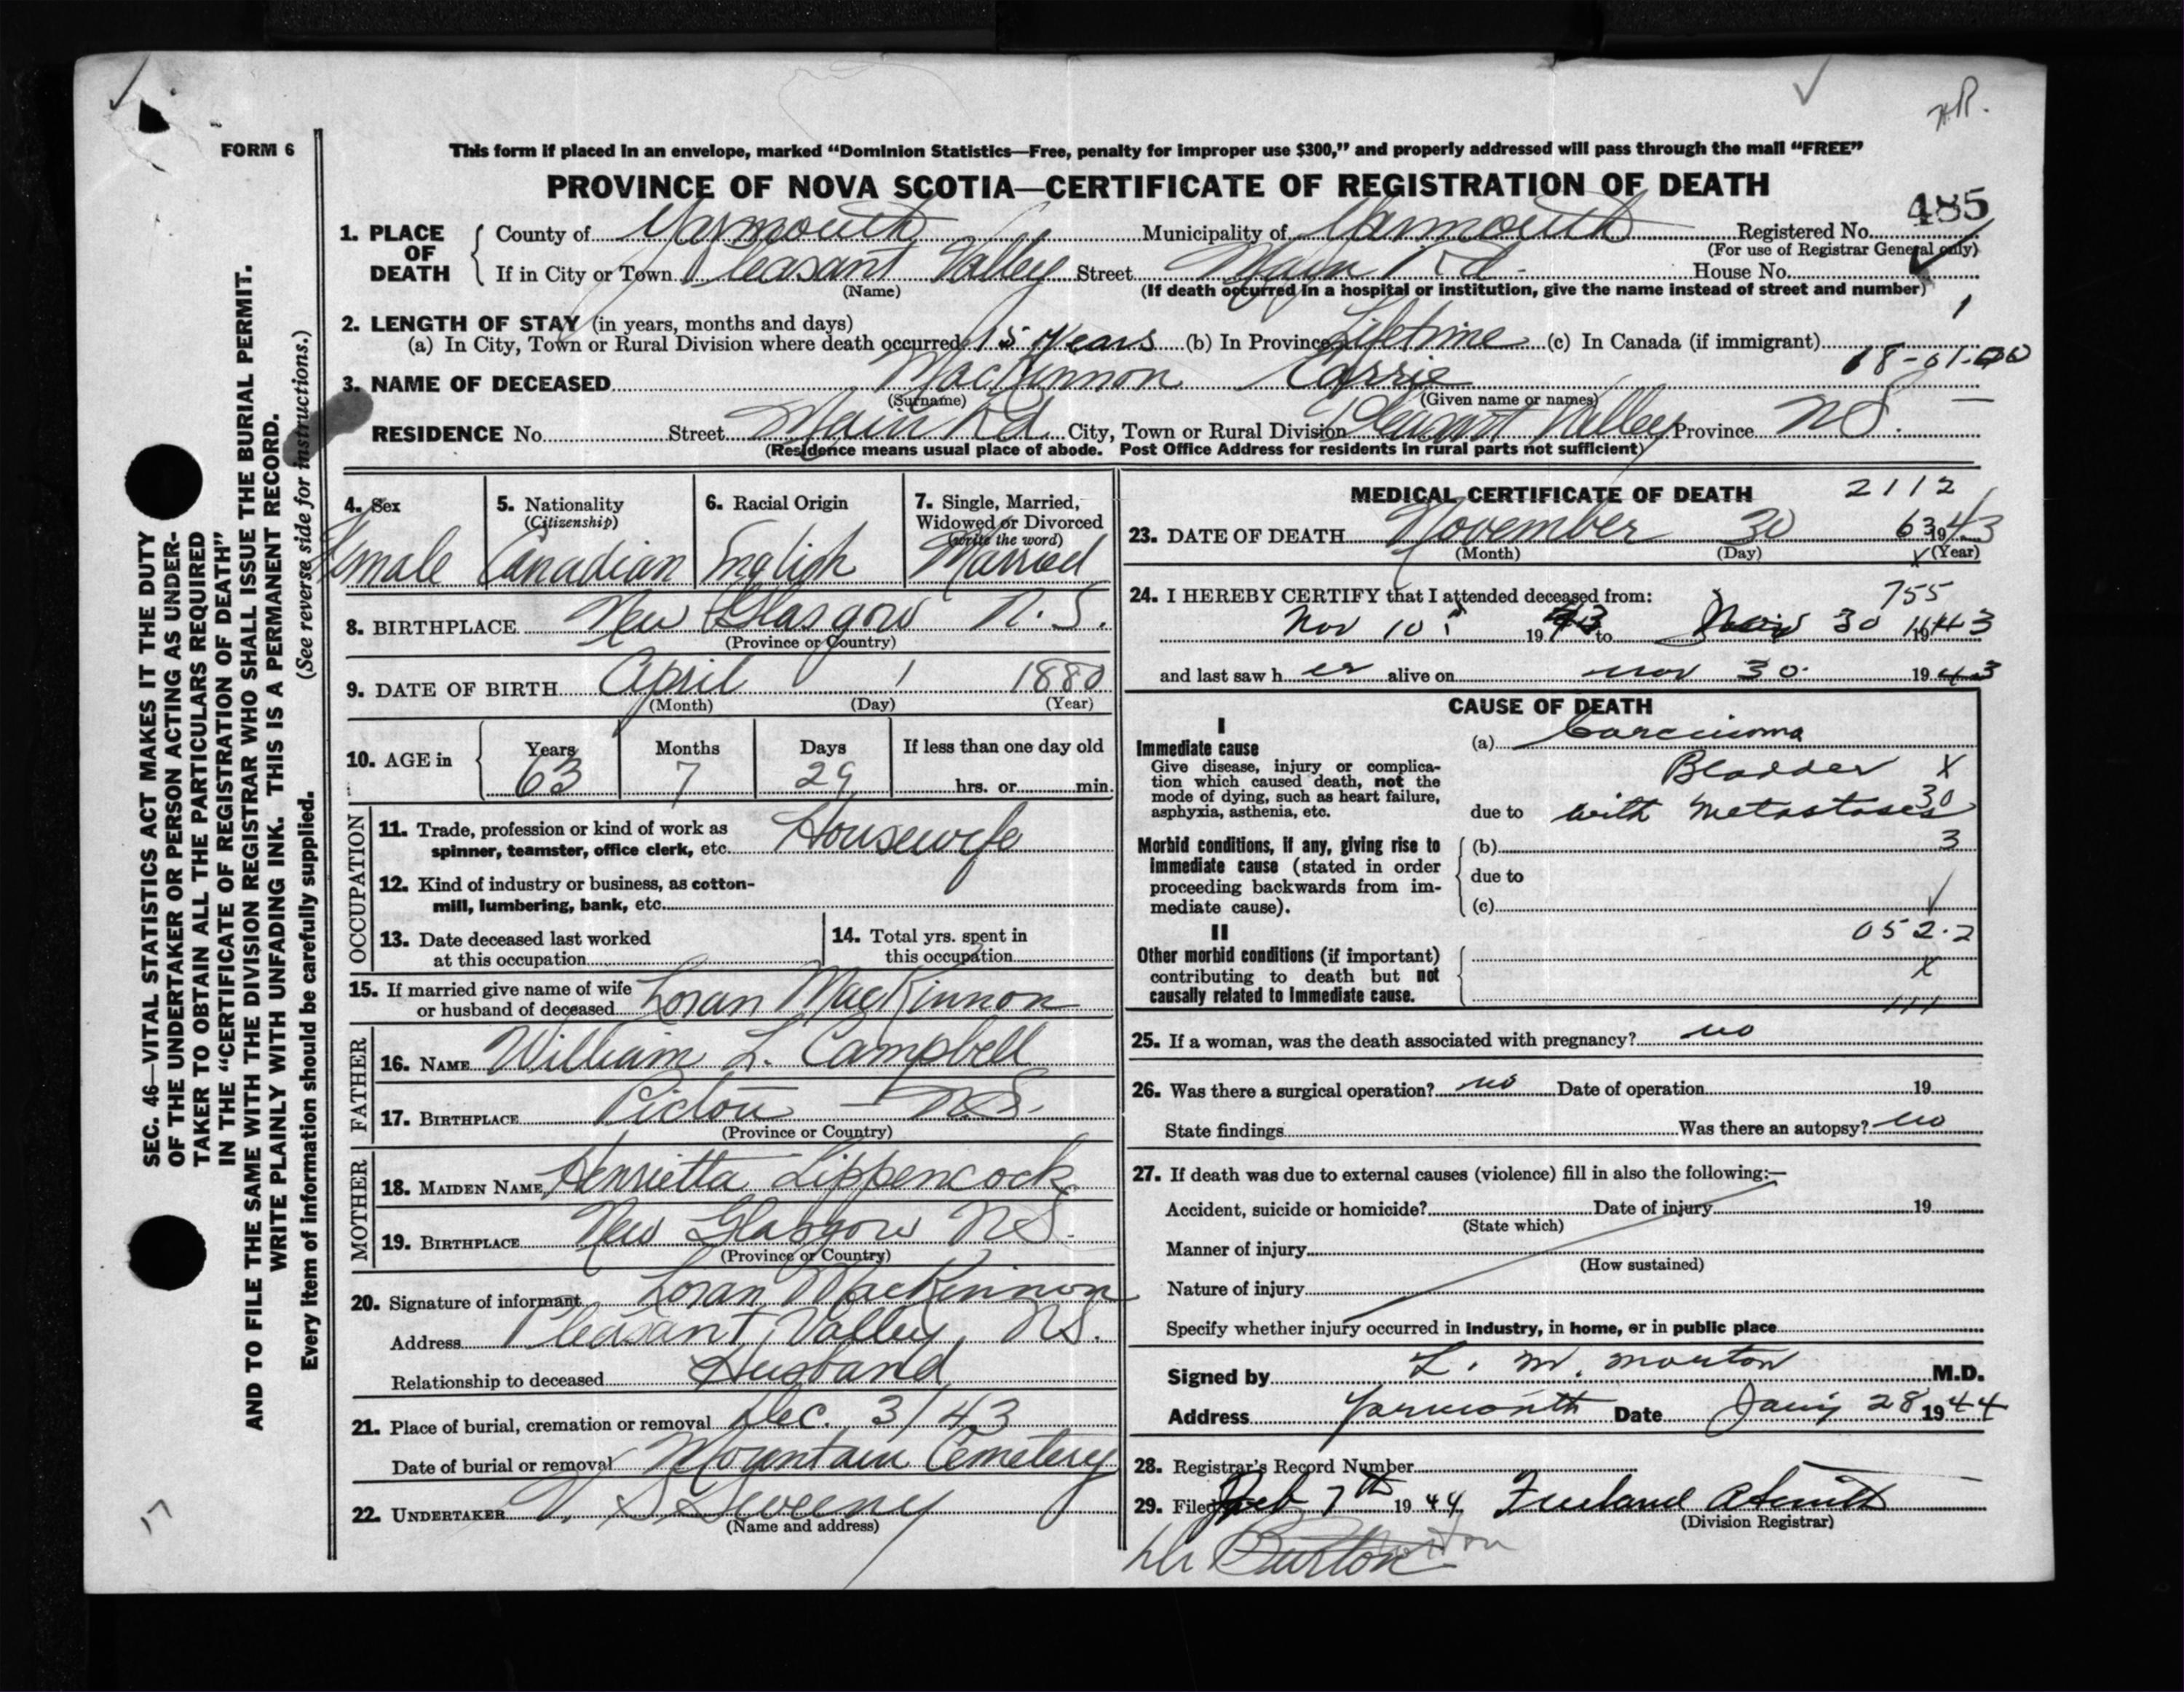 FORM 6
This form if placed in an envelope, marked “Dominion Statistics—Free, penalty for improper use $300,” and properly addressed will pass through the mail “FREE”
PROVINCE OF NOVA SCOTIA—CERTIFICATE OF REGISTRATION OF DEATH
485
1. PLACE OF DEATH { County of Yarmouth Municipality of Yarmouth Registered No.
(For use of Registrar General only)
If in City or Town Pleasant Valley Street Main Rd. House No.
(Name) (If death occurred in a hospital or institution, give the name instead of street and number)
1
2. LENGTH OF STAY (in years, months and days)
(a) In City, Town or Rural Division where death occurred 15 years (b) In Province Lifetime (c) In Canada (if immigrant)
18-01-00
3. NAME OF DECEASED MacKinnon Carrie
(Surname) (Given name or names)
RESIDENCE No. Street Main Rd. City, Town or Rural Division Pleasant Valley Province NS.
(Residence means usual place of abode. Post Office Address for residents in rural parts not sufficient)
4. Sex 5. Nationality (Citizenship) 6. Racial Origin 7. Single, Married, Widowed or Divorced (write the word)
Female Canadian English Married
8. BIRTHPLACE New Glasgow N.S.
(Province or Country)
9. DATE OF BIRTH April 1 1880
(Month) (Day) (Year)
10. AGE in { Years Months Days If less than one day old
63 7 29 hrs. or min.
OCCUPATION
11. Trade, profession or kind of work as spinner, teamster, office clerk, etc. Housewife
12. Kind of industry or business, as cotton-mill, lumbering, bank, etc.
13. Date deceased last worked at this occupation
14. Total yrs. spent in this occupation
15. If married give name of wife or husband of deceased Loran MacKinnon
FATHER
16. NAME William L. Campbell
17. BIRTHPLACE Pictou - NS.
(Province or Country)
MOTHER
18. MAIDEN NAME Henrietta Lippencock
19. BIRTHPLACE New Glasgow NS.
(Province or Country)
20. Signature of informant Loran MacKinnon
Address Pleasant Valley, NS.
Relationship to deceased Husband
21. Place of burial, cremation or removal Dec. 3/43
Date of burial or removal Mountain Cemetery
22. UNDERTAKER V. S. Sweeny
(Name and address)
MEDICAL CERTIFICATE OF DEATH 2112
23. DATE OF DEATH November 30 63 1943
(Month) (Day) (Year)
24. I HEREBY CERTIFY that I attended deceased from: 755
Nov 10 1943 to Nov 30 1943
and last saw her alive on nov 30 1943
CAUSE OF DEATH
I
Immediate cause
Give disease, injury or complication which caused death, not the mode of dying, such as heart failure, asphyxia, asthenia, etc.
(a) Carcinoma
Bladder X
due to with metastases 30
Morbid conditions, if any, giving rise to immediate cause (stated in order proceeding backwards from immediate cause).
(b) 3
due to
(c)
II
052.2
Other morbid conditions (if important) contributing to death but not causally related to immediate cause.
X
111
25. If a woman, was the death associated with pregnancy? no
26. Was there a surgical operation? no Date of operation 19
State findings Was there an autopsy? no
27. If death was due to external causes (violence) fill in also the following:—
Accident, suicide or homicide? Date of injury 19
(State which)
Manner of injury
(How sustained)
Nature of injury
Specify whether injury occurred in industry, in home, or in public place
Signed by L. M. Morton M.D.
Address Yarmouth Date Jany 28 1944
28. Registrar's Record Number
29. Filed Feb 7th 1944 Freeland A Smith
(Division Registrar)
Dr Burton
17
SEC. 46—VITAL STATISTICS ACT MAKES IT THE DUTY
OF THE UNDERTAKER OR PERSON ACTING AS UNDER-
TAKER TO OBTAIN ALL THE PARTICULARS REQUIRED
IN THE “CERTIFICATE OF REGISTRATION OF DEATH”
AND TO FILE THE SAME WITH THE DIVISION REGISTRAR WHO SHALL ISSUE THE BURIAL PERMIT.
WRITE PLAINLY WITH UNFADING INK. THIS IS A PERMANENT RECORD.
Every item of information should be carefully supplied. (See reverse side for instructions.)